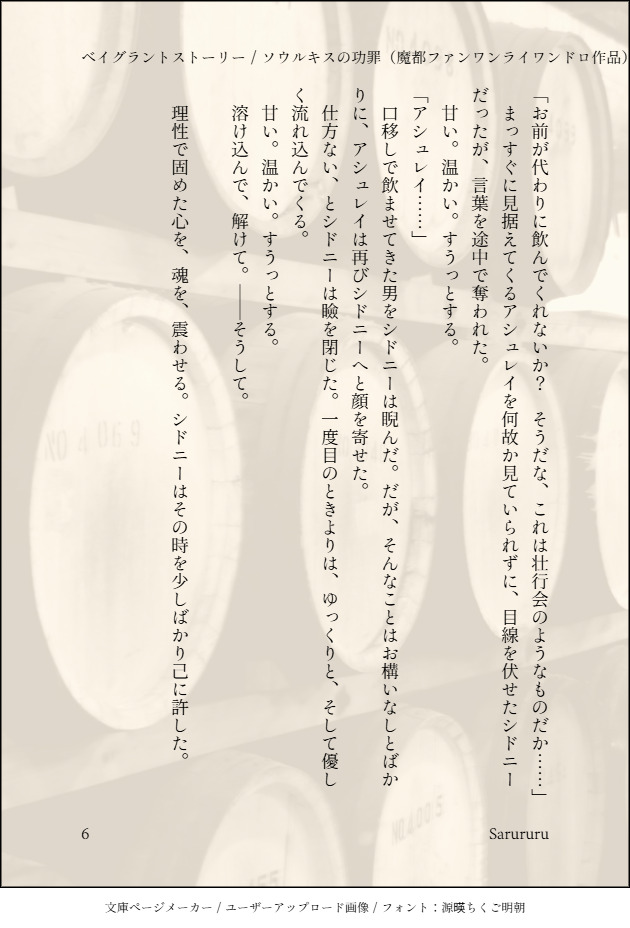 ベイグラントストーリー / ソウルキスの功罪（魔都ファンワンライワンドロ作品）
「お前が代わりに飲んでくれないか？　そうだな、これは壮行会のようなものだか……」
まっすぐに見据えてくるアシュレイを何故か見ていられずに、目線を伏せたシドニー
だったが、言葉を途中で奪われた。
甘い。温かい。すうっとする。
「アシュレイ……」
口移しで飲ませてきた男をシドニーは睨んだ。だが、そんなことはお構いなしとばか
りに、アシュレイは再びシドニーへと顔を寄せた。
仕方ない、とシドニーは瞼を閉じた。一度目のときよりは、ゆっくりと、そして優し
く流れ込んでくる。
甘い。温かい。すうっとする。
溶け込んで、解けて。――そうして。
理性で固めた心を、魂を、震わせる。シドニーはその時を少しばかり己に許した。
6
Sarururu
文庫ページメーカー / ユーザーアップロード画像 / フォント：源暎ちくご明朝